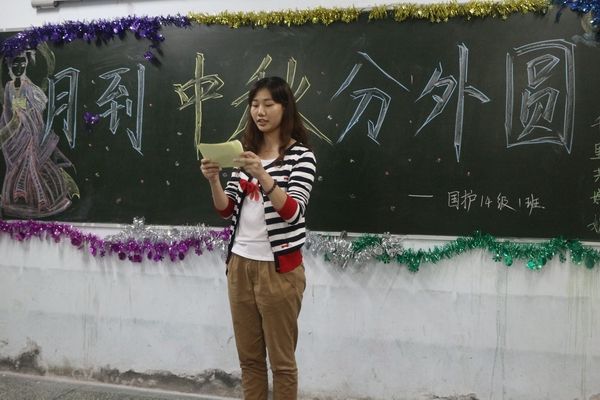 月到中秋分外圆
—国护14级1班